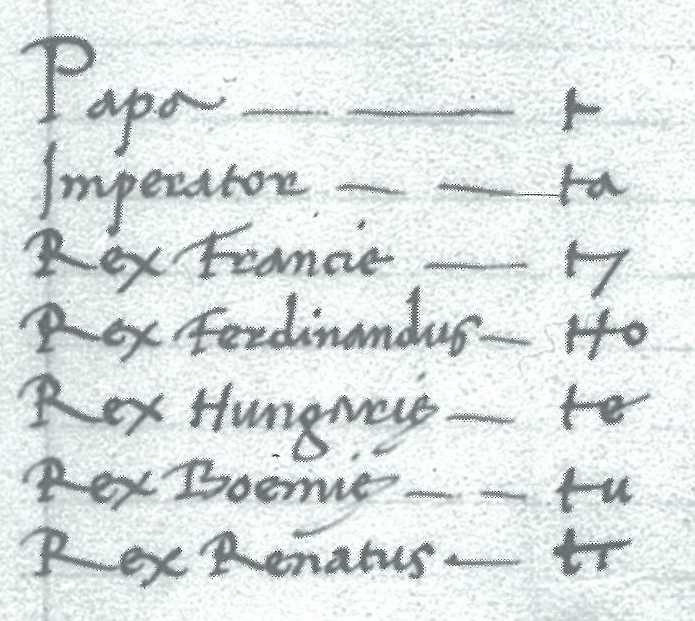 Papa — — t
Imperator — — ta
Rex Francie — ty
Rex Ferdinandus — to
Rex Hungarie — te
Rex Boemie — — tu
Rex Renatus — tr